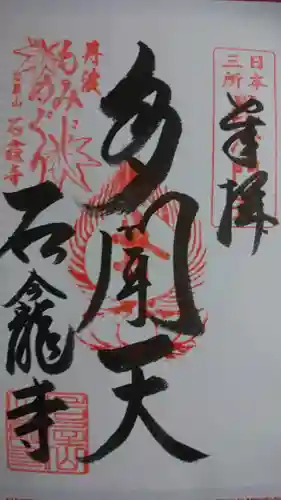 日本
三所
奉拝
多聞天
丹波
もみじ
めぐり
岩屋山
石龕寺
石龕寺